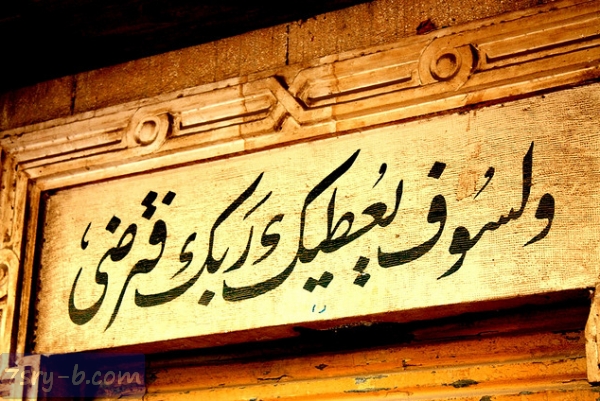 ولسوف يُعطيك رَبك فترضى
7sry-b.com